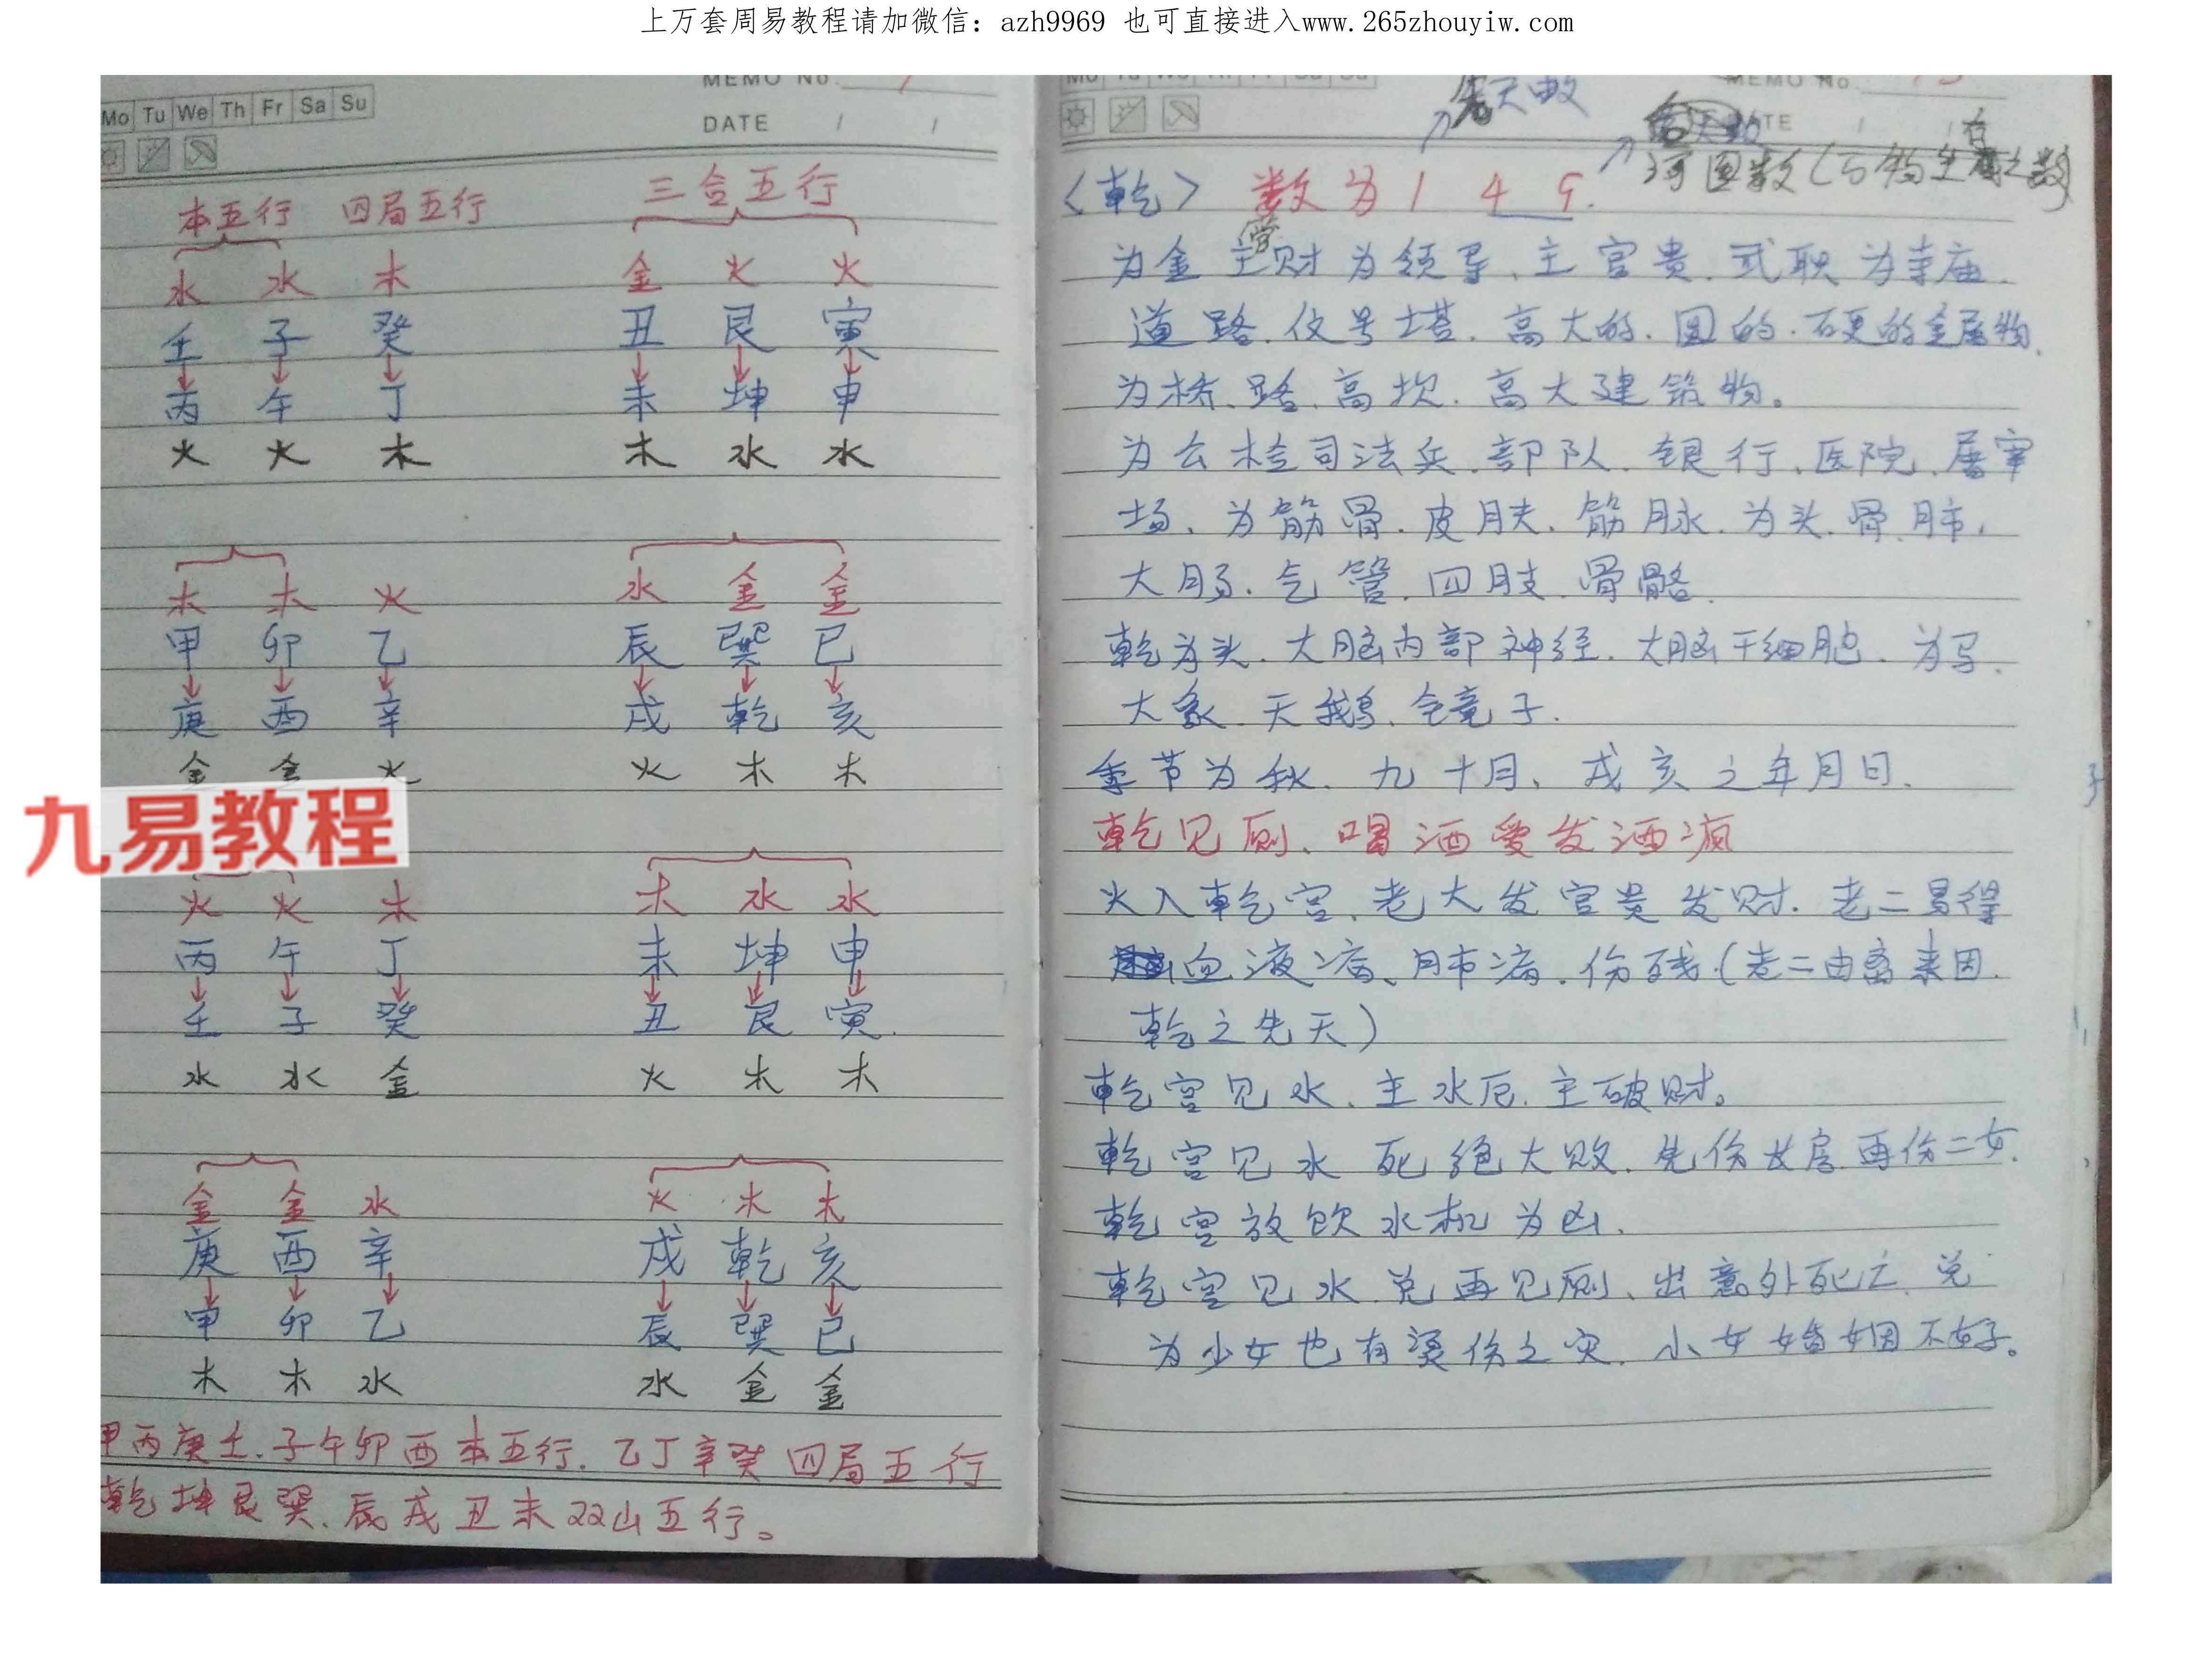 上万套周易教程请加微信：azh9969 也可直接进入www.265zhouyiw.com
MEMO No.
Mo Tu We Th Fr Sa Su
DATE / /
本五行 四局五行 三合五行
水 水 木 金 火 火
壬 子 癸 丑 艮 寅
丙 午 丁 未 坤 申
火 火 木 木 水 水
木 木 火 水 金 金
甲 卯 乙 辰 巽 巳
庚 酉 辛 戌 乾 亥
金 金 火 火 木 木
九易教程
火 火 木 木 水 水
丙 午 丁 未 坤 申
壬 子 癸 丑 艮 寅
水 水 金 火 木 木
金 金 水 火 木 木
庚 酉 辛 戌 乾 亥
甲 卯 乙 辰 巽 巳
木 木 水 水 金 金
甲丙庚壬.子午卯酉本五行.乙丁辛癸四局五行
乾坤艮巽、辰戌丑未双山五行。
MEMO No.
先天数
DATE
河图数(万物生存之数)
<乾> 数为1 4 9.
掌
为金主财为领导、主官贵.武职为寺庙.
道路.仪号塔.高大的.圆的.硬的金属物.
为桥、路、高坎.高大建筑物。
为公检司法兵.部队.银行、医院.屠宰
场、为筋骨.皮肤.筋脉.为头.骨.肺.
大肠.气管.四肢.骨骼.
乾为头.大脑内部神经.大脑干细胞.为马.
大象.天鹅.镜子.
季节为秋.九十月、戌亥之年月日.
乾见厕、喝酒爱发酒疯
火入乾宫、老大发官贵发财.老二易得
血液病、肺病.伤残.(老二由离来因
乾之先天)
乾宫见水、主水厄.主破财。
乾宫见水死绝大败.先伤长房.再伤二女.
乾宫放饮水机为凶.
乾宫见水.兑再见厕、出意外死亡.兑
为少女也有烫伤之灾.小女婚姻不好。